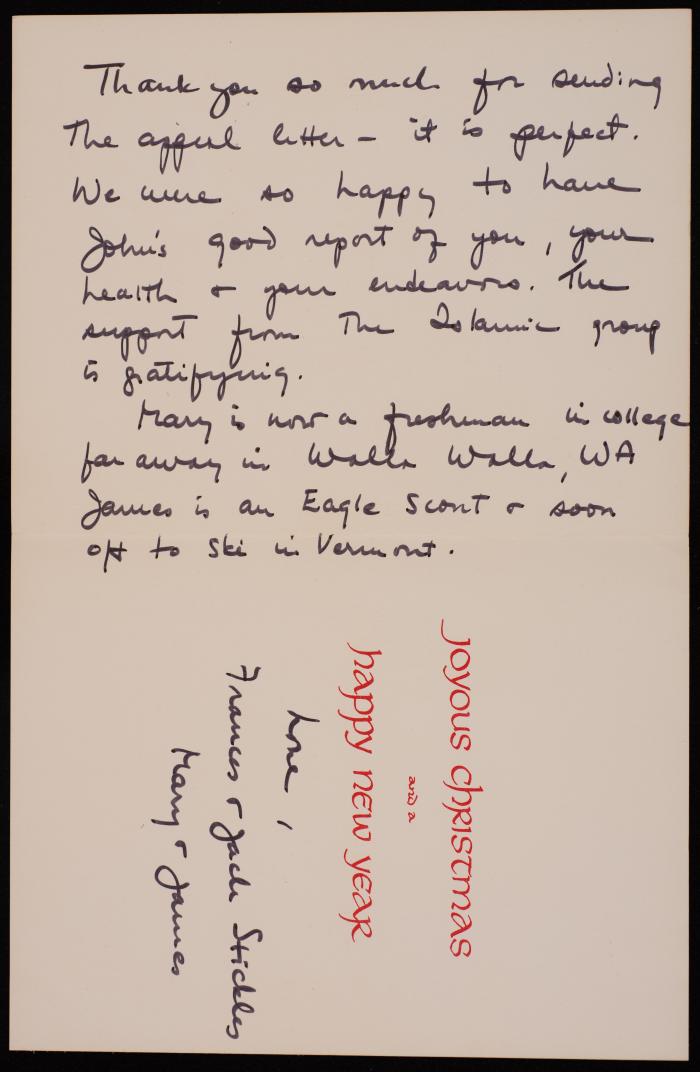 Thank you so much for sending
the appeal letter – it is perfect.
We were so happy to have
John's good report of you, your
health & your endeavors. The
support from the Islamic group
is gratifying.
Mary is now a freshman in college
far away in Walla Walla, WA
James is an Eagle Scout & soon
off to ski in Vermont.
Joyous Christmas
and a
happy new year
Love,
Frances & Jack Stickles
Mary & James